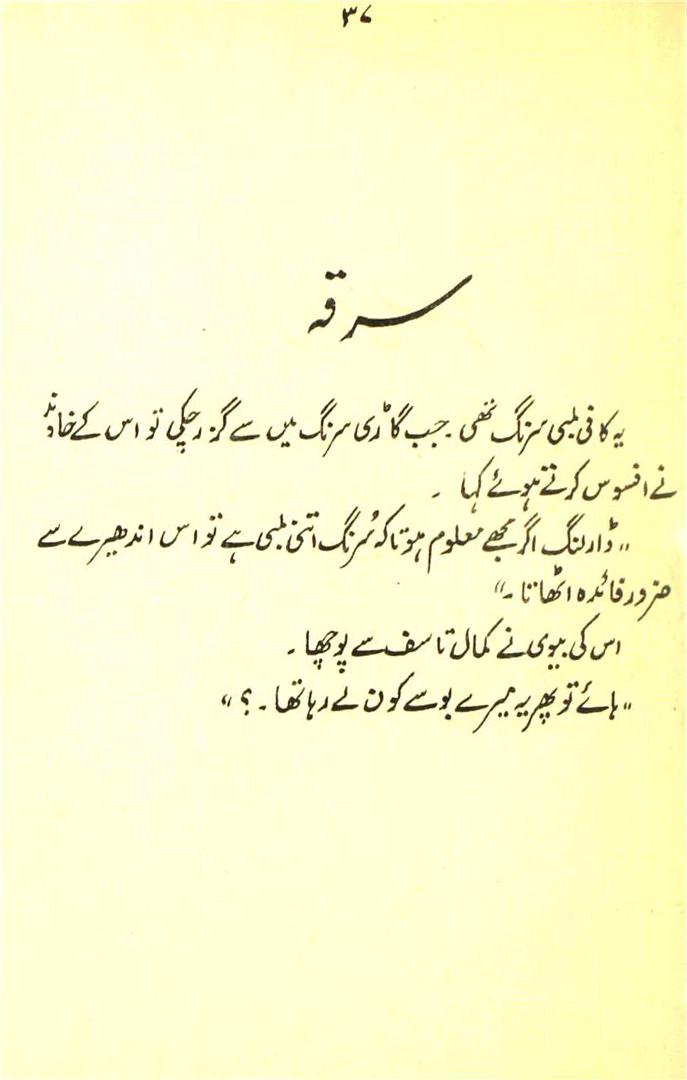 ۳۷
سرقہ
یہ کافی لمبی سرنگ تھی۔ جب گاڑی سرنگ میں سے گزر چکی تو اس کے خاوند
نے افسوس کرتے ہوئے کہا ۔
"ڈارلنگ اگر مجھے معلوم ہوتا کہ سُرنگ اتنی لمبی ہے تو اس اندھیرے سے
ضرور فائدہ اٹھاتا ۔"
اس کی بیوی نے کمال تاسف سے پوچھا ۔
"ہائے تو پھر یہ میرے بوسے کون لے رہا تھا ۔ ؟"